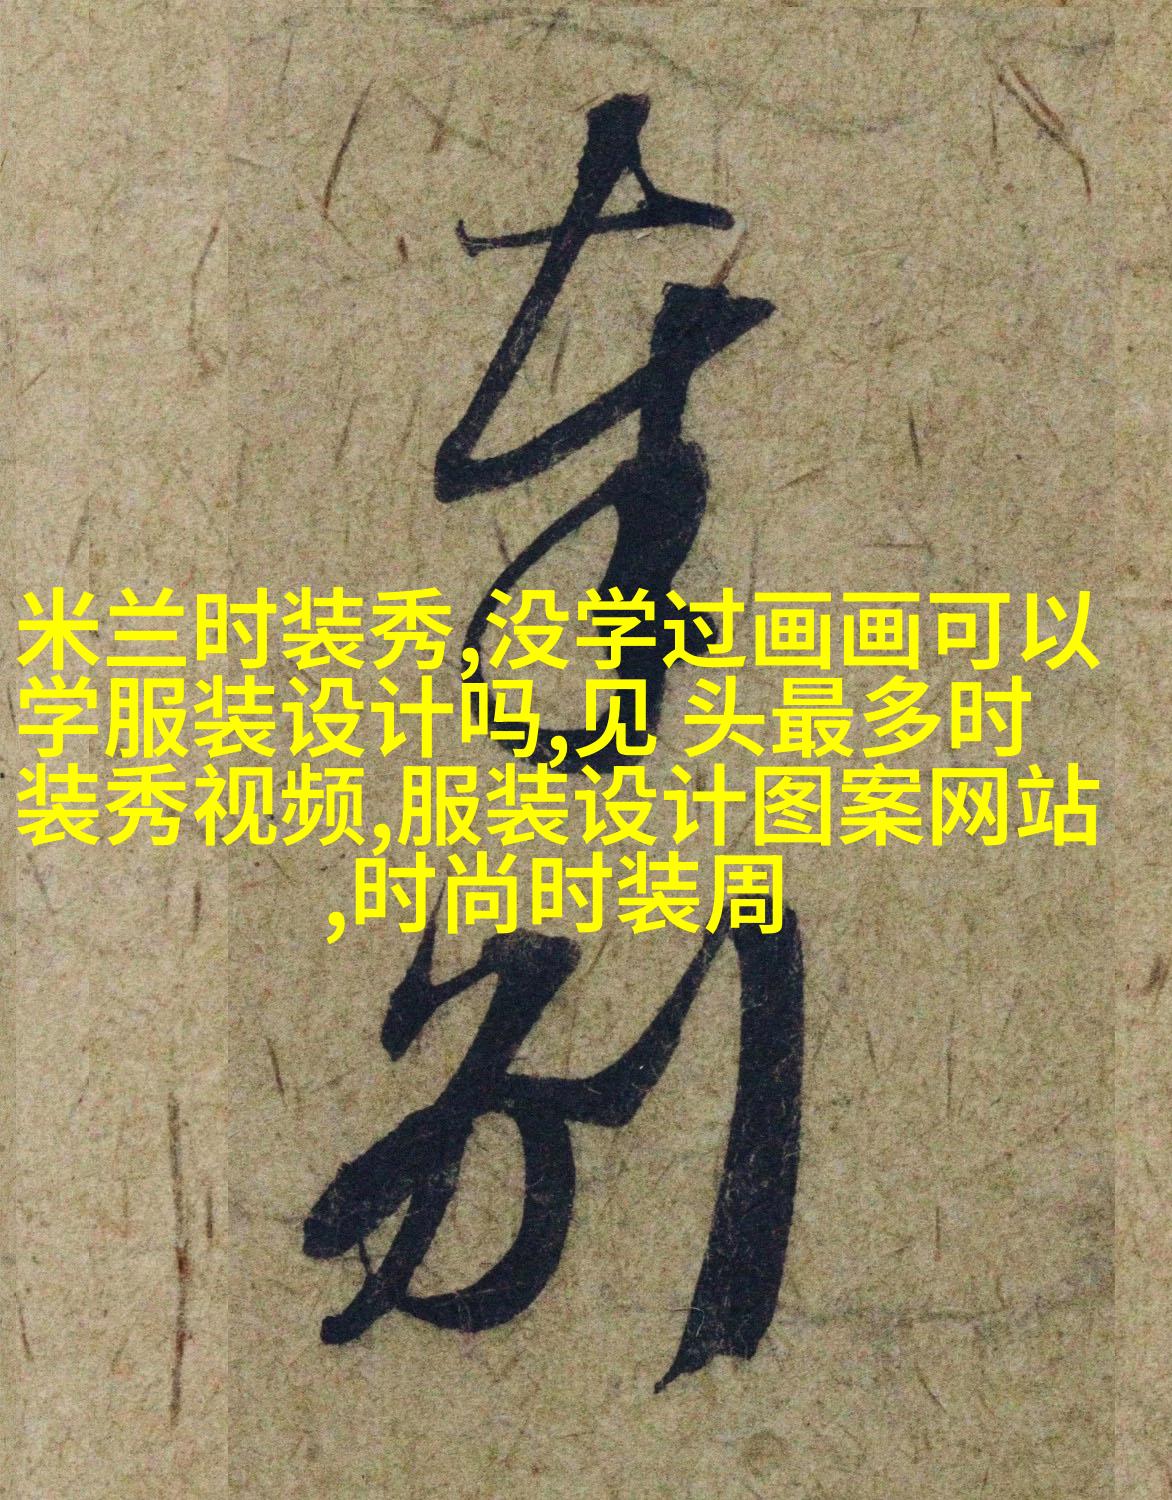 米兰时装秀,没学过画画可以
学服装设计吗,见 头最多时
装秀视频,服装设计图案网站
,时尚时装周